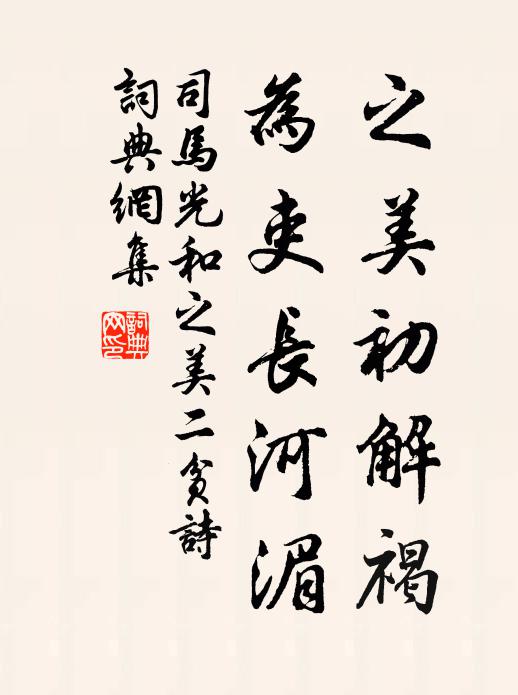 之美初解褐
為吏長河湄
司馬光和之美二貧詩
詞典網集
詞典網印